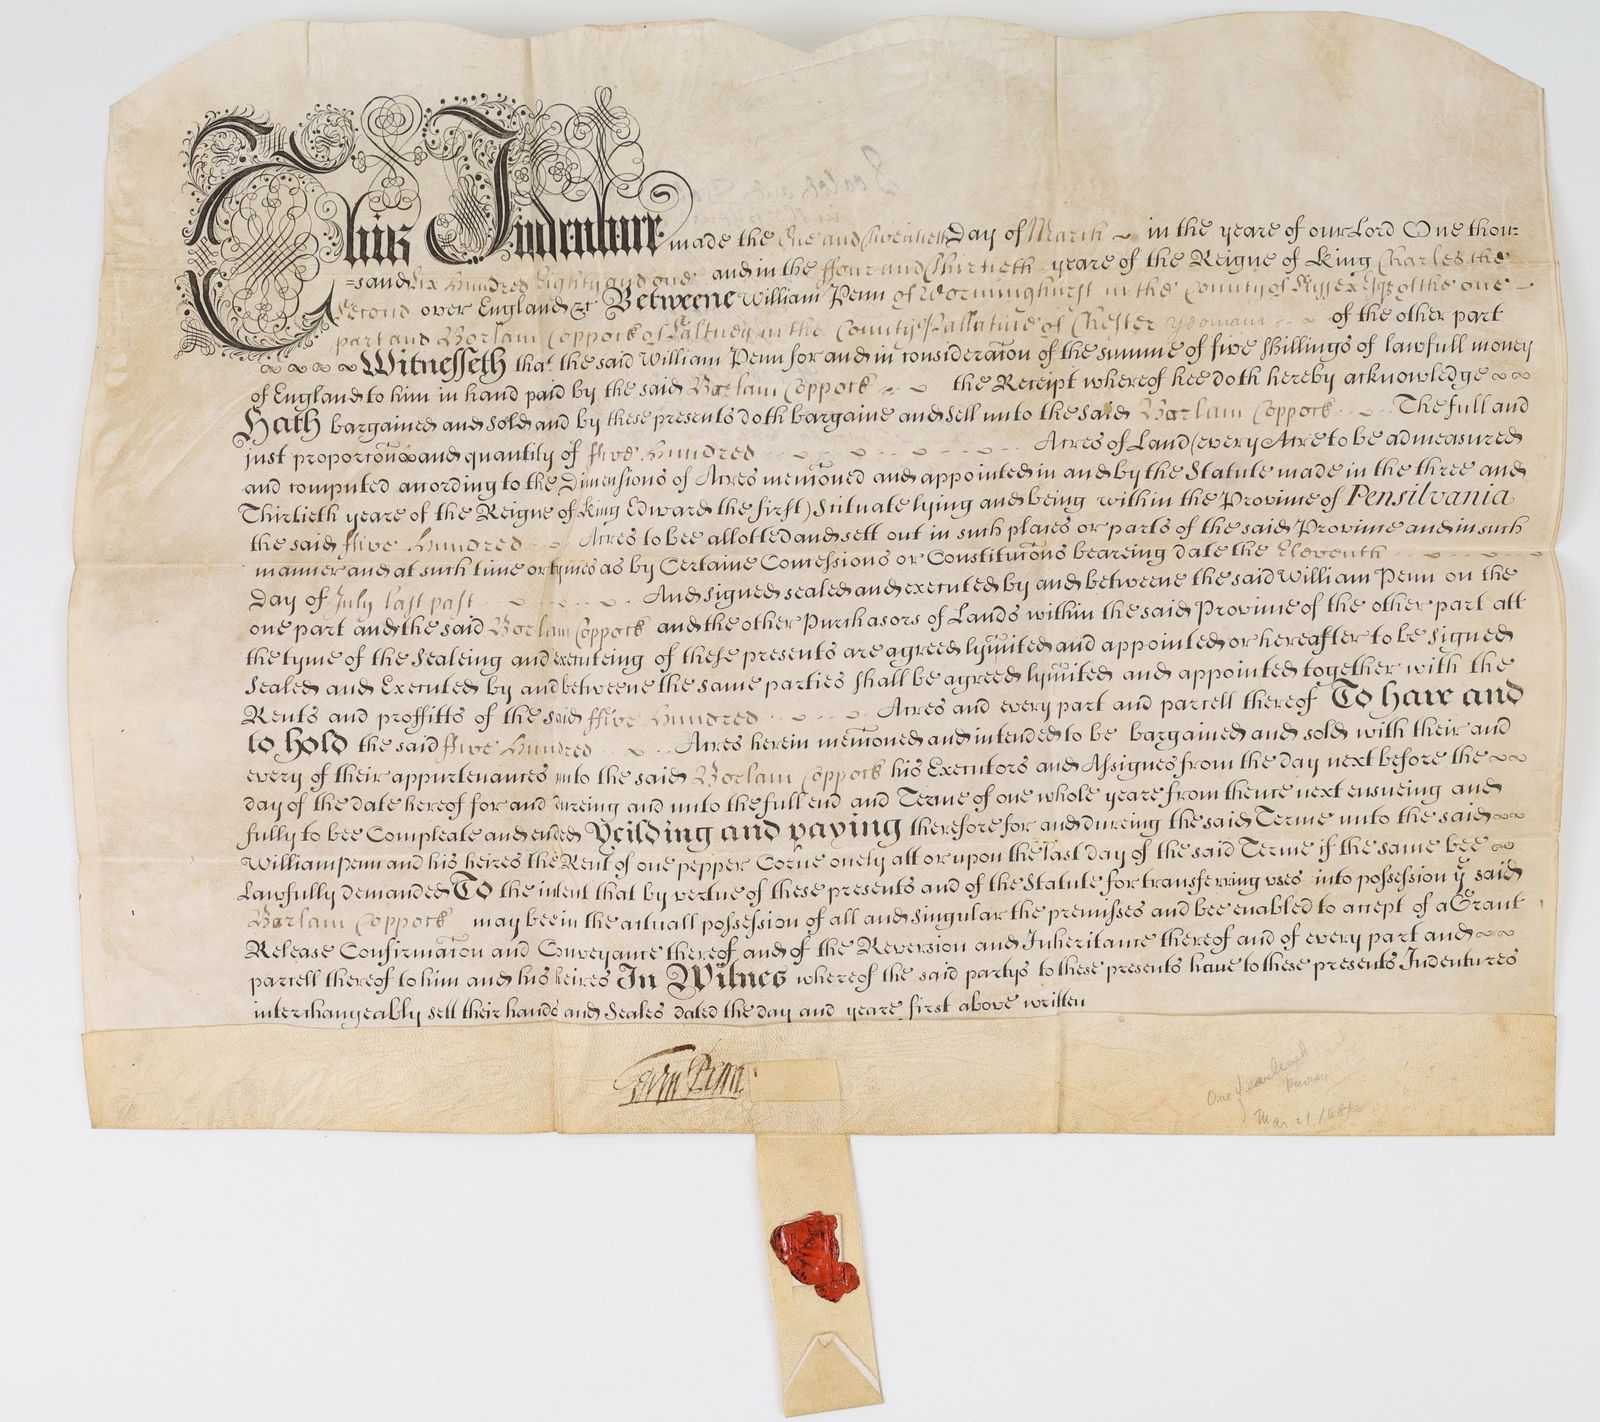 This Indenture made the One and Twentieth Day of March in the yeare of our Lord One thou=
=sand Six Hundred Eighty and one and in the ffour and Thirtieth yeare of the Reigne of King Charles the
Second over England &c Betweene William Penn of Worminghurst in the County of Sussex Esqr of the one
part and Barlam Coppock of Saltney in the County Pallatine of Chester yeoman of the other part
Witnesseth that the said William Penn for and in consideracon of the summe of five shillings of lawfull money
of England to him in hand paid by the said Barlam Coppock the Receipt whereof hee doth hereby acknowledge
Hath bargained and sold and by these presents doth bargaine and sell unto the said Barlam Coppock The full and
just proporcon and quantity of ffive Hundred Acres of Land (every Acre to be admeasured
and computed according to the Dimensions of Acres menconed and appointed in and by the Statute made in the three and
Thirtieth yeare of the Reigne of King Edward the first) Scituate lying and being within the Province of Pensilvania
the said ffive Hundred Acres to bee allotted and sett out in such places or parts of the said Province and in such
manner and at such time or tymes as by Certaine Concessions or Constitucons beareing date the Eleventh
Day of July last past And signed sealed and executed by and betweene the said William Penn on the
one part and the said Barlam Coppock and the other Purchasors of Lands within the said Province of the other part att
the tyme of the Sealeing and executeing of these presents are agreed lymited and appointed or hereafter to be signed
Sealed and Executed by and betweene the same parties shall be agreed lymited and appointed together with the
Rents and proffitts of the said ffive Hundred Acres and every part and parcell thereof To have and
to hold the said ffive Hundred Acres herein menconed and intended to be bargained and sold with their and
every of their appurtenances unto the said Barlam Coppock his Executors and Assignes from the day next before the
day of the date hereof for and dureing and unto the full end and Terme of one whole yeare from thence next ensueing and
fully to bee Compleate and ended Yeilding and paying therefore for and dureing the said Terme unto the said
William Penn and his heires the Rent of one pepper Corne onely att or upon the last day of the said Terme if the same bee
Lawfully demanded To the intent that by vertue of these presents and of the Statute for transferring uses into possession ye said
Barlam Coppock may bee in the actuall possession of all and singular the premisses and bee enabled to accept of a Grant
Release Confirmacon and Conveyance thereof and of the Reversion and Inheritance thereof and of every part and
parcell thereof to him and his heires In Witnes whereof the said partys to these presents have to these presents Indentures
interchangeably sett their hands and Seales dated the day and yeare first above written
Wm Penn
One
Mar 21 1681